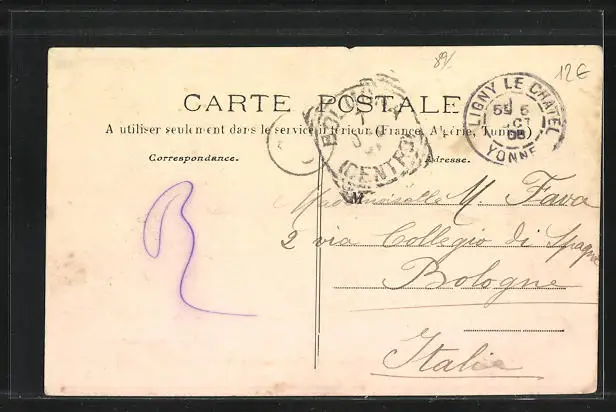 12€
CARTE POSTALE
A utiliser seulement dans le service intérieur (France, Algérie, Tunisie)
Correspondance.
Adresse.
BOLOGNA
(CENTRO)
LIGNY LE CHATEL
YONNE
M
Mademoiselle M. Fava
2 via Collegio di Spagna
Bologne
Italie